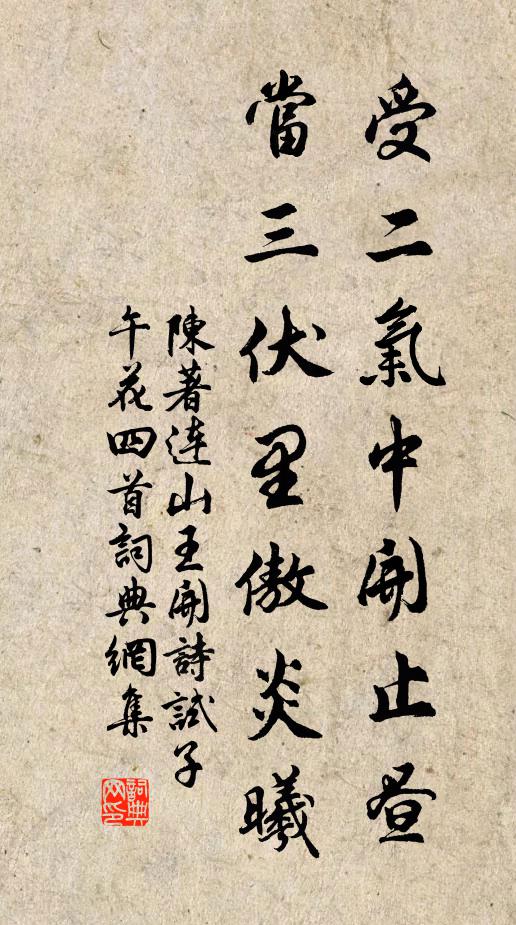 受二氣中開止昼
當三伏里傲炎曦
陳著連山王開詩試子
午花四首詞典網集
詞典网印